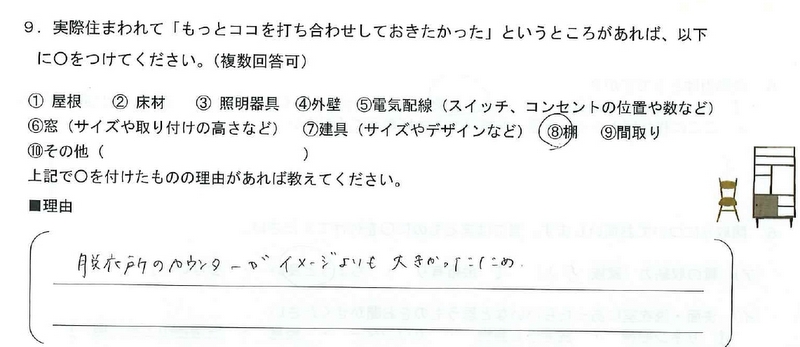 ９．実際住まわれて「もっとココを打ち合わせしておきたかった」というところがあれば、以下
に〇をつけてください。（複数回答可）
① 屋根　② 床材　③ 照明器具　④外壁　⑤電気配線（スイッチ、コンセントの位置や数など）
⑥窓（サイズや取り付けの高さなど）　⑦建具（サイズやデザインなど）　⑧棚　⑨間取り
⑩その他（　　　　　　　　　　）
上記で〇を付けたものの理由があれば教えてください。
■理由
脱衣所のカウンターがイメージよりも大きかったため.